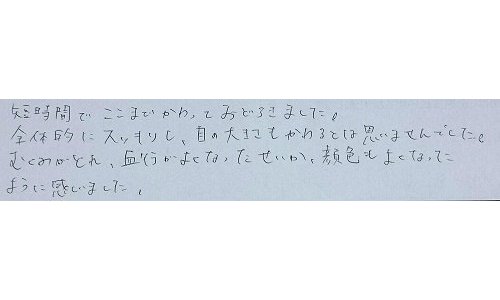 短時間でここまでかわっておどろきました。
全体的にスッキリし、目の大きさもかわるとは思いませんでした。
むくみがとれ、血行がよくなったせいか、顔色もよくなった
ように感じました。